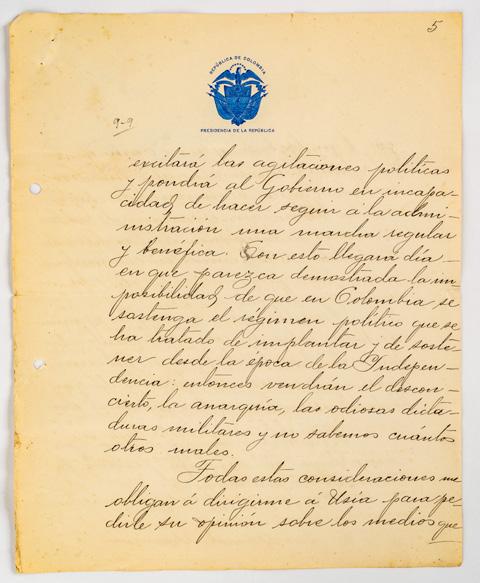 5
REPÚBLICA DE COLOMBIA
PRESIDENCIA DE LA REPÚBLICA
9-9
excitará las agitaciones políticas
y pondrá al Gobierno en incapa-
cidad de hacer seguir á la admi-
nistración una marcha regular
y benéfica. Con esto llegará día
en que parezca demostrada la im
posibilidad de que en Colombia se
sostenga el régimen político que se
ha tratado de implantar y de soste
ner desde la época de la Indepen-
dencia: entonces vendrán el descon-
cierto, la anarquía, las odiosas dicta-
duras militares y no sabemos cuántos
otros males.
Todas estas consideraciones me
obligan á dirigirme á Usía para pe-
dirle su opinión sobre los medios que